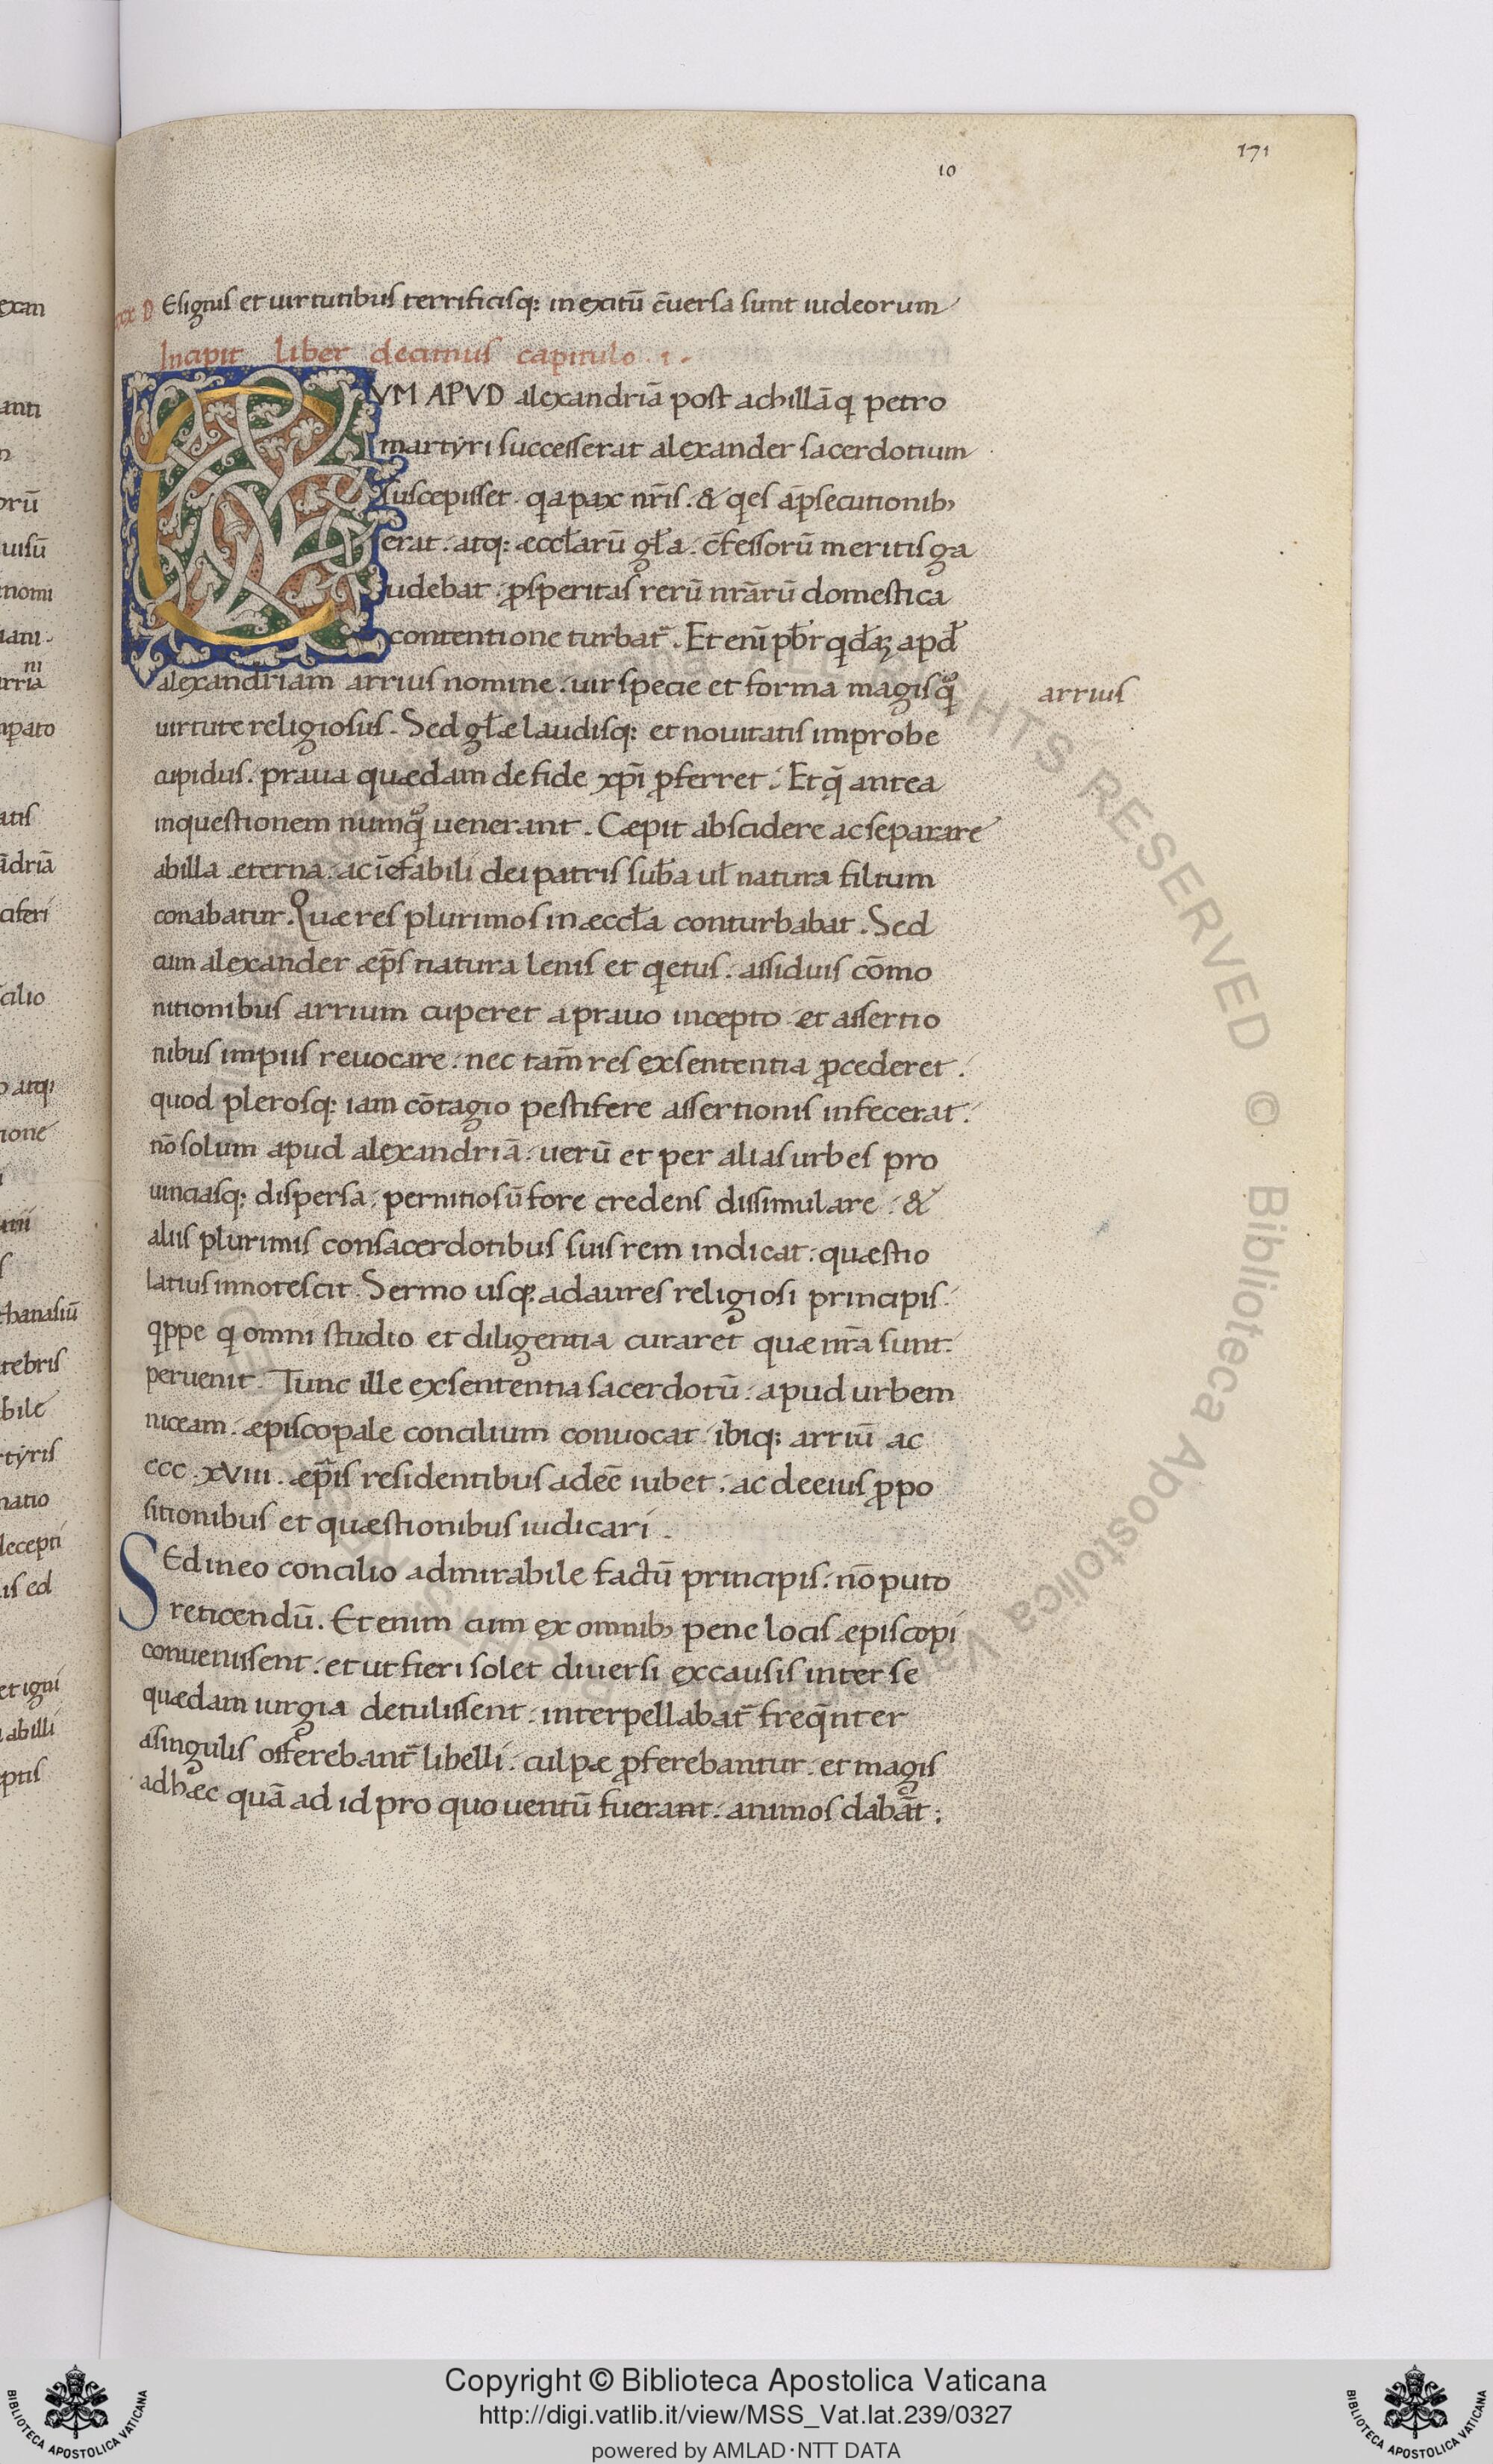 171
10
xxx D Esignis et uirtutibus terrificisq: in exitū c̄uersa sunt iudeorum
Incipit Liber decimus capitulo .1.
CVM APVD alexandriā post achillā q petro
martÿri successerat alexander sacerdotium
suscepisset. qa pax nr̄is. & qes a p̄secutionib;
erat. atq: æccl̄arū gl̄a. c̄fessorū meritis ga
udebat. p̄speritas rerū nr̄arū domestica
contentione turbat̄. Et eni pb̄r qdā apd̄
alexandriam arrius nomine. uir specie et forma magis q̊
arrius
uirtute religiosus. Sed gl̄æ laudisq: et nouitatis improbe
cupidus. praua quædam de fide xp̄i p̄ferret. Et q̄ antea
inquestionem numq̊ uenerant. Cæpit abscidere ac separare
ab illa eterna. ac ief̄abili dei patris sub̄a ul̄ natura filium
conabatur. Quæ res plurimos in æccl̄a conturbabat. Sed
cum alexander æp̄s natura lenis et qetus. assiduis cōmo
nitionibus arrium cuperet a prauo incepto et assertio
nibus impiis reuocare. nec tam̄ res ex sententia p̄cederet.
quod plerosq: iam cōtagio pestifere assertionis infecerat.
nō solum apud alexandriā. uerū et per alias urbes pro
uinciasq: dispersa. pernitiosū fore credens dissimulare. &
aliis plurimis consacerdotibus suis rem indicat. quæstio
latius innotescit. Sermo usq: ad aures religiosi principis.
qppe q omni studio et diligentia curaret quæ nr̄a sunt.
peruenit. Tunc ille ex sententia sacerdotū. apud urbem
niceam. æpiscopale concilium conuocat ibiq: arriū ac
ccc.xviii. æp̄is residentibus adeē iubet. ac de eius p̄po
sitionibus et quæstionibus iudicari.
SEd in eo concilio admirabile factū principis. nō puto
reticendū. Et enim cum ex omnib; pene locis æpiscopi
conuenissent. et ut fieri solet diuersi ex causis inter se
quædam iurgia detulissent. interpellabat̄ freq̄nter
a singulis offerebant̄ libelli. culpæ p̄ferebantur. et magis
ad hæc quā ad id pro quo uentū fuerant. animos dabāt.
Copyright © Biblioteca Apostolica Vaticana
http://digi.vatlib.it/view/MSS_Vat.lat.239/0327
powered by AMLAD·NTT DATA